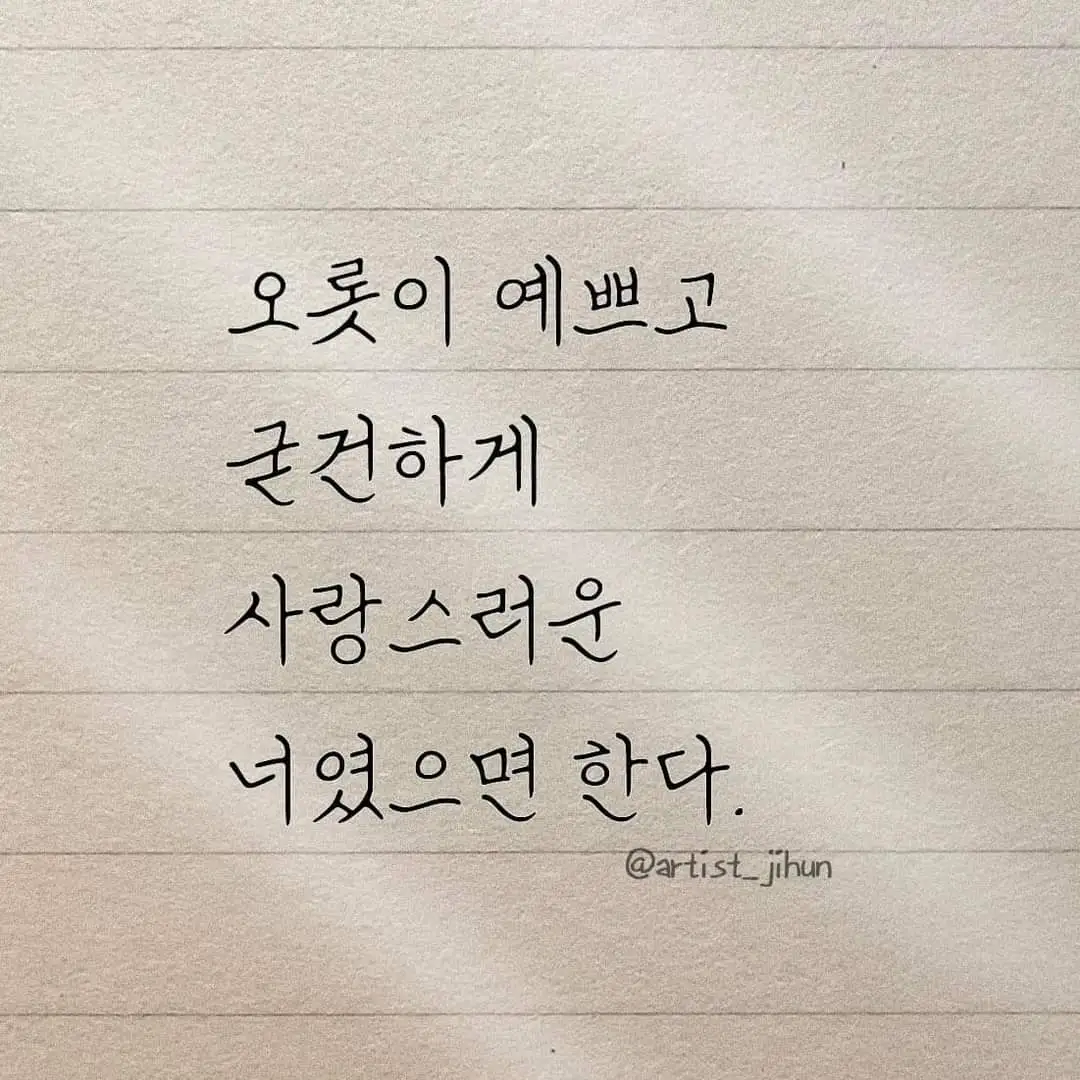 오롯이 예쁘고
굳건하게
사랑스러운
너였으면 한다.
@artist_jihun